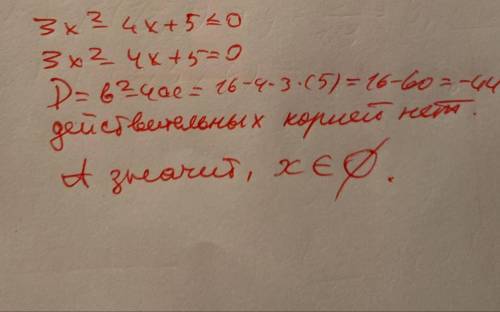 3x² - 4x + 5 ≤ 0
3x² - 4x + 5 = 0
D = b² - 4ac = 16 - 4·3·(5) = 16 - 60 = -44
действительных корней нет.
А значит, x ∈ ∅.